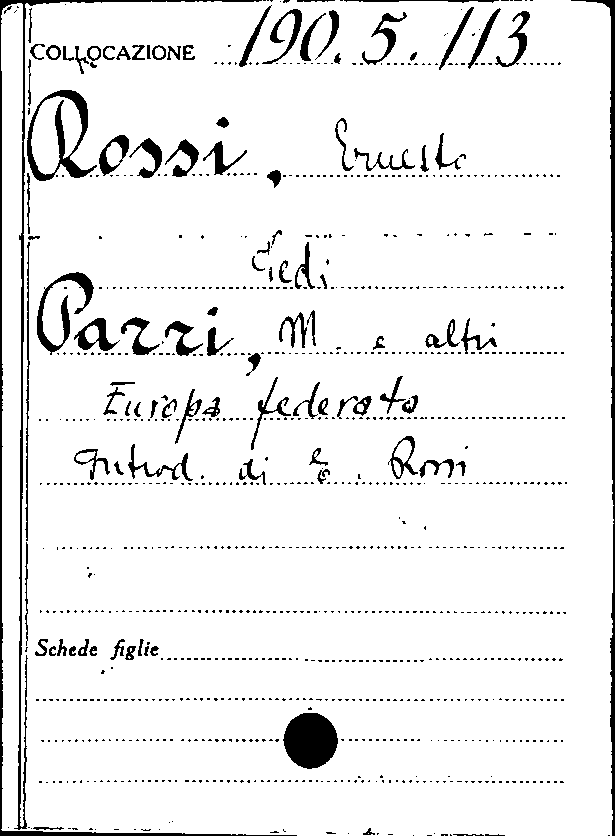 COLLOCAZIONE 190.5.113
Rossi, Ernesto
Vedi
Parri, M. e altri
Europa federata
Introd. di E. Rossi
Schede figlie